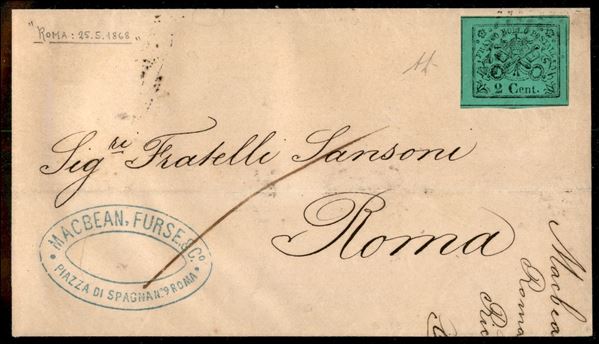 "Roma: 25.5.1868"
FRANCO BOLLO POSTALE
2 Cent.
Sig.ri Fratelli Sansoni
Roma
MACBEAN, FURSE & Co.
PIAZZA DI SPAGNA No 9 ROMA
Macbea
Roma
Ric